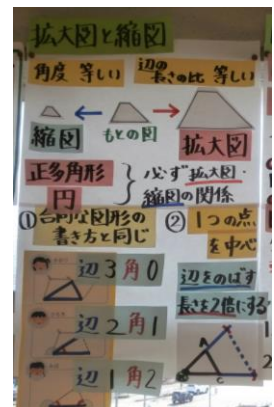 拡大図と縮図
角度 等しい
辺の長さの比 等しい
縮図
もとの図
拡大図
正多角形
円
必ず拡大図・
縮図の関係
①合同な図形の
書き方と同じ
② 1つの点
を中心
辺3角0
辺2角1
辺1角2
辺をのばす
長さを2倍にする
A
C